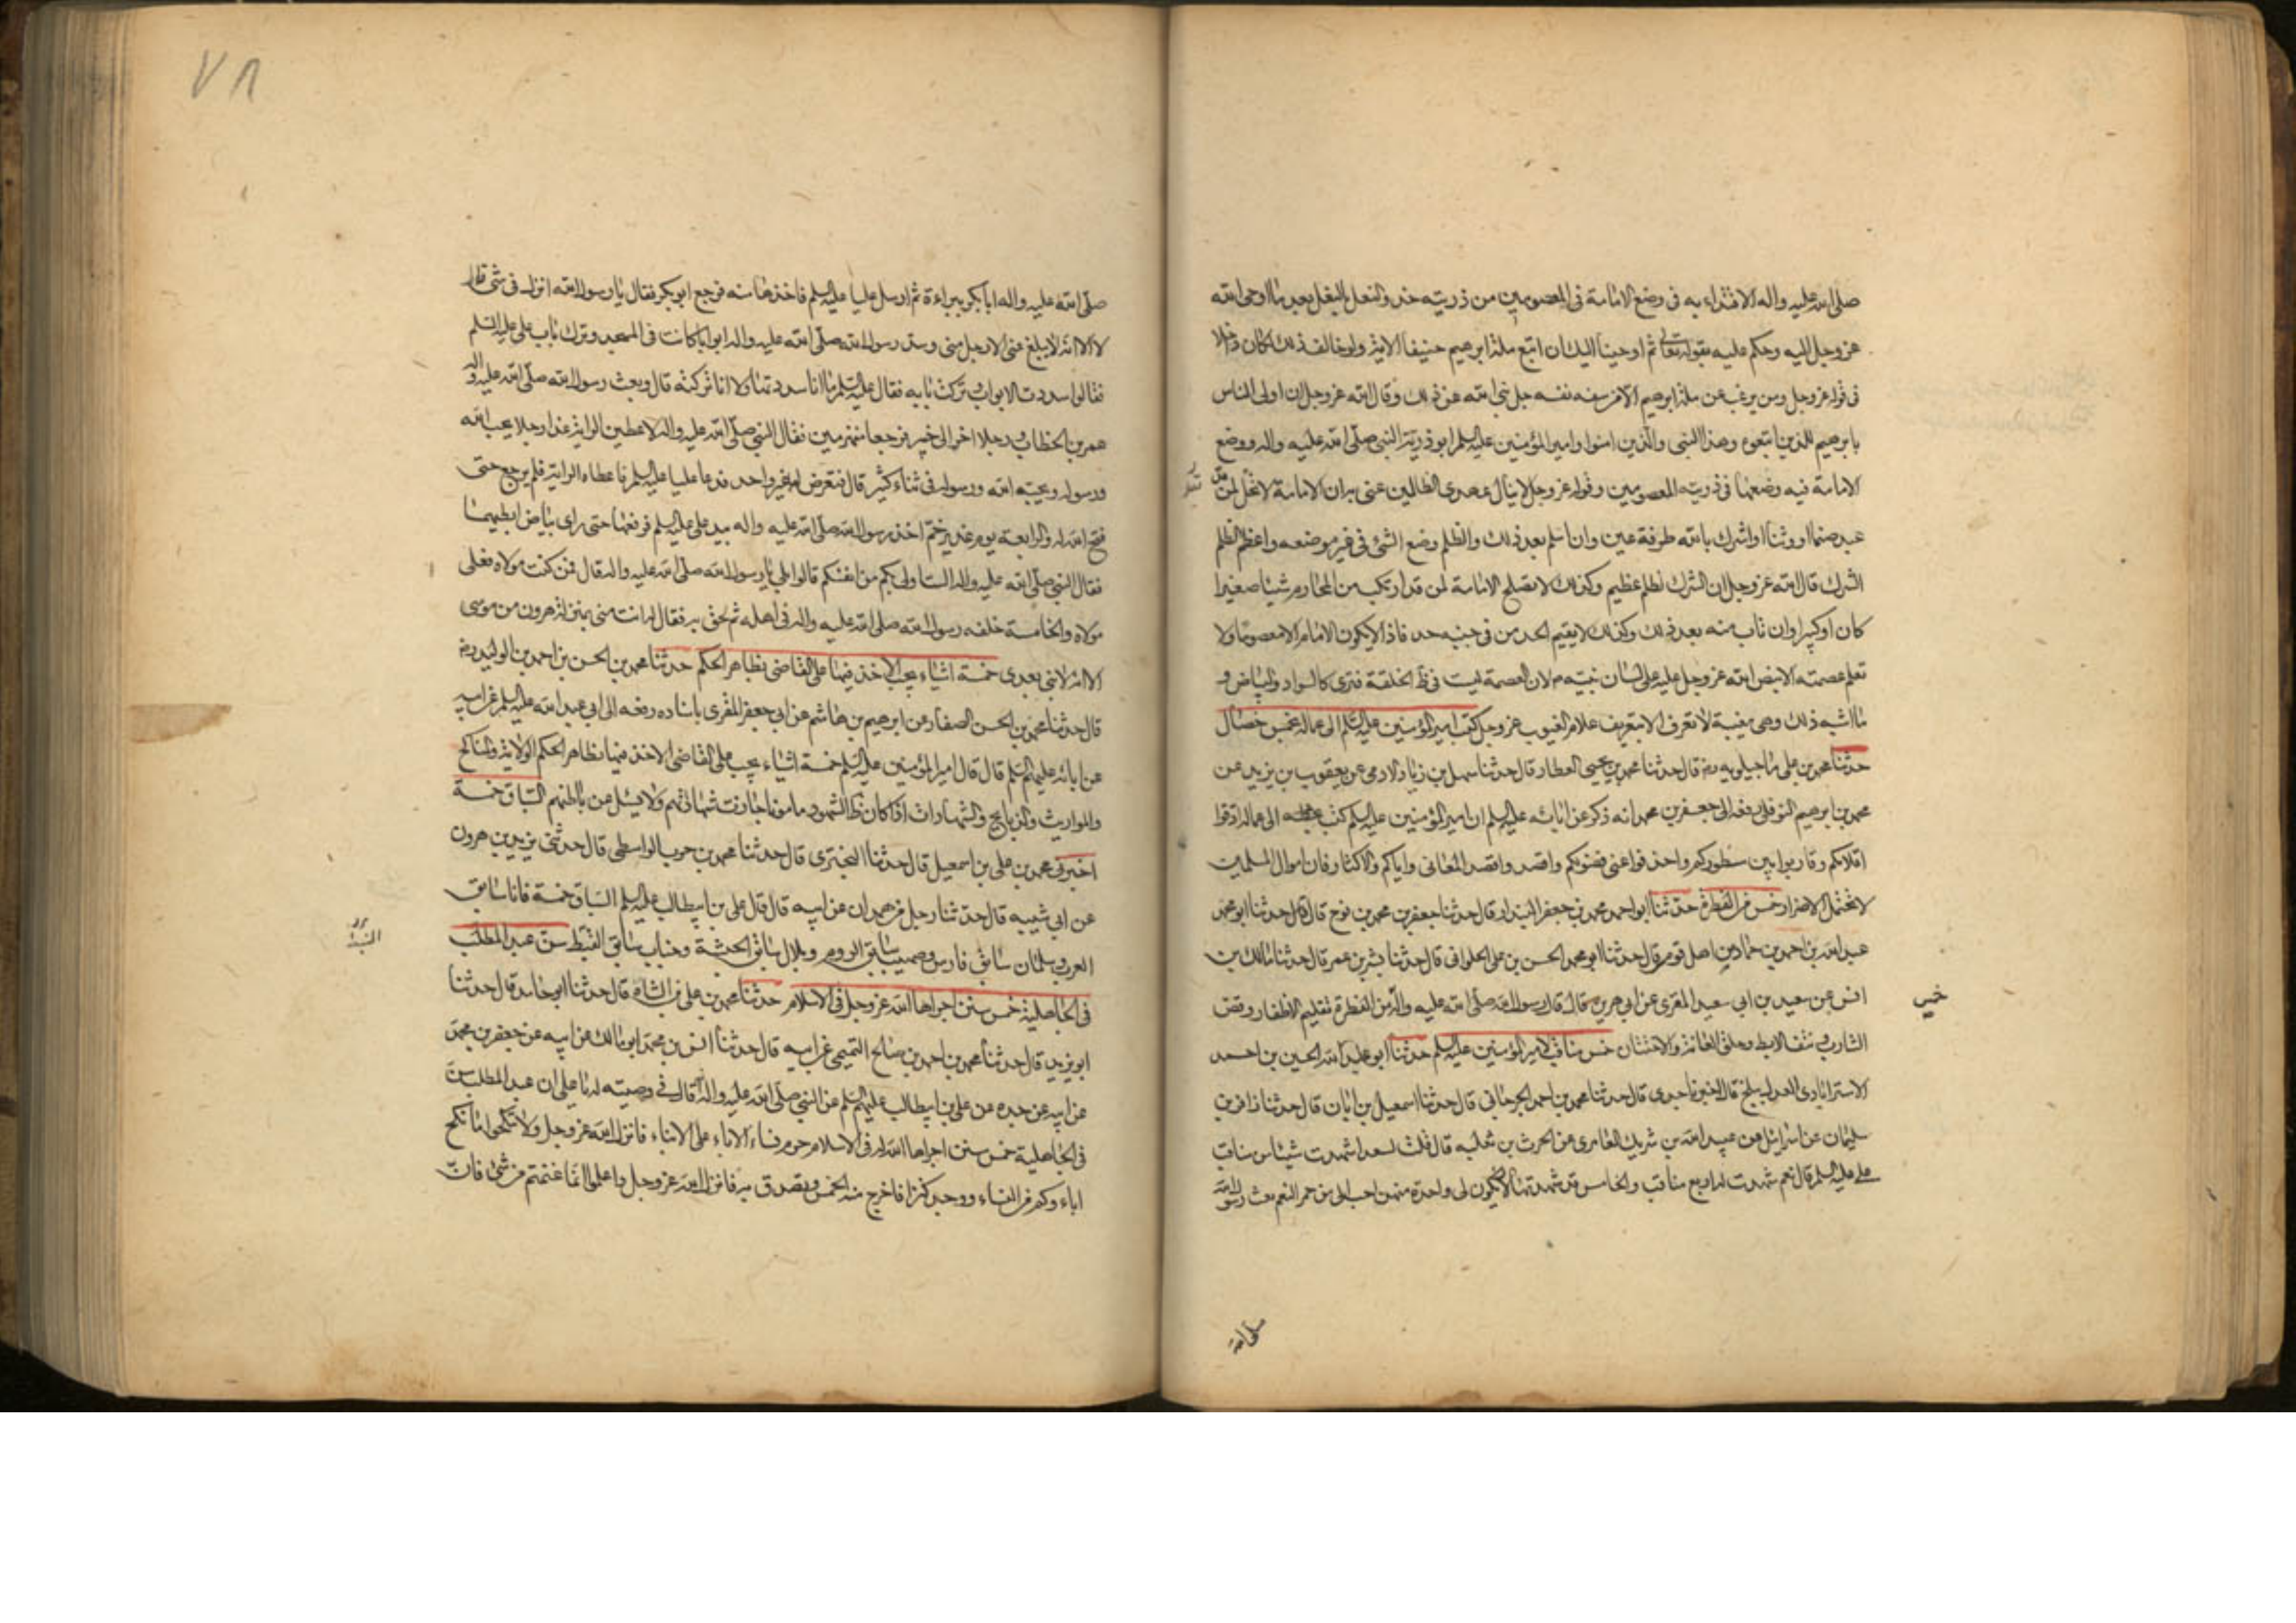 صلى الله عليه واله الاقتداء به فى وضع الامامة فى المعصومين من ذريته حذو النعل بالنعل بعد ما اوحى الله
عز وجل اليه وحكم عليه بقوله تعالى ثم اوحينا اليك ان اتبع ملة ابرهيم حنيفا الاية ولو خالف ذلك لكان داخلا
فى قوله عز وجل ومن يرغب عن ملة ابرهيم الا من سفه نفسه جل نبى الله عن ذلك وقال الله عز وجل ان اولى الناس
بابرهيم للذين اتبعوه وهذا النبى والذين امنوا وامير المؤمنين عليه السلم ابو ذرية النبى صلى الله عليه واله ووضع
الامامة فيه وضعها فى ذريته المعصومين وقوله عز وجل لا ينال عهدى الظالمين عنى به ان الامامة لا تصلح لمن قد
عبد صنما او وثنا او اشرك بالله طرفة عين وان اسلم بعد ذلك والظلم وضع الشئ فى غير موضعه واعظم الظلم
الشرك قال الله عز وجل ان الشرك لظلم عظيم وكذلك لا تصلح الامامة لمن قد ارتكب من المحارم شيئا صغيرا
كان او كبيرا وان تاب منه بعد ذلك وكذلك لا يقيم الحد من فى جنبه حد فاذا لا يكون الامام الا معصوما ولا
تعلم عصمته الا بنص الله عز وجل عليه على لسان نبيه م لان العصمة ليست فى ظ الخلقة فترى كالسواد والبياض و
ما اشبه ذلك وهى مغيبة لا تعرف الا بتعريف علام الغيوب عز وجل كتب امير المؤمنين عليه السلم الى عماله بخمس خصال
حدثنا محمد بن على ماجيلويه رض قال حدثنا محمد بن يحيى العطار قال حدثنا سهل بن زياد الادمى عن يعقوب بن يزيد عن
محمد بن ابرهيم النوفلى رفعه الى جعفر بن محمد انه ذكر عن ابائه عليه السلم ان امير المؤمنين عليه السلم كتب الى عماله ادقوا
اقلامكم وقاربوا بين سطوركم واحذفوا عنى فضولكم واقصدوا قصد المعانى واياكم والاكثار فان اموال المسلمين
لا تحتمل الاضرار خمس من الفطرة حدثنا ابو احمد محمد بن جعفر البندار قال حدثنا جعفر بن محمد بن نوح قال حدثنا ابو محمد
عبد الله بن احمد بن حماد من اهل قومس قال حدثنا ابو محمد الحسن بن على الحلوانى قال حدثنا بشر بن عمر قال حدثنا مالك بن
انس عن سعيد بن ابى سعيد المقرى عن ابى هريرة قال قال رسول الله صلى الله عليه واله من الفطرة تقليم الاظفار وقص
خمس
الشارب ونتف الابط وحلق العانة والاختتان خمس مناقب لامير المؤمنين عليه السلم حدثنا ابو عبد الله الحسين بن احمد
الاسترابادى العدل ببلخ قال اخبرنا جدى قال حدثنا محمد بن احمد الجرجانى قال حدثنا اسمعيل بن ابان قال حدثنا زافر بن
سليمان عن اسرائيل عن عبد الله بن شريك العامرى عن الحرث بن ثعلبه قال قلت لسعد اشهدت شيئا من مناقب
على عليه السلم قال نعم شهدت له اربع مناقب والخامس قد شهدتها لان يكون لى واحدة منهن احب الى من حمر النعم بعث رسول الله
صلى الله
٧٨
صلى الله عليه واله ابا بكر ببراءة ثم ارسل عليا عليه السلم فاخذها منه فرجع ابو بكر فقال يا رسول الله انزل فى شئ قال
لا الا انه لا يبلغ عنى الا رجل منى وسد رسول الله صلى الله عليه واله ابوابا كانت فى المسجد وترك باب على عليه السلم
فقالوا سددت الابواب وتركت بابه فقال عليه السلم ما انا سددتها ولا انا تركته قال وبعث رسول الله صلى الله عليه واله
عمر بن الخطاب ورجلا اخر الى خيبر فرجعا منهزمين فقال النبى صلى الله عليه واله لاعطين الراية غدا رجلا يحب الله
ورسوله ويحبه الله ورسوله فى ثناء كثير قال فتعرض لها غير واحد فدعا عليا عليه السلم فاعطاه الراية فلم يرجع حتى
فتح الله له والرابعة يوم غدير خم اخذ رسول الله صلى الله عليه واله بيد على عليه السلم فرفعها حتى راى بياض ابطيهما
فقال النبى صلى الله عليه واله الست اولى بكم من انفسكم قالوا بلى يا رسول الله صلى الله عليه واله قال فمن كنت مولاه فعلى
مولاه والخامسة خلفه رسول الله صلى الله عليه واله فى اهله ثم لحق به فقال له انت منى بمنزلة هرون من موسى
الا انه لا نبى بعدى خمسة اشياء يجب الاخذ فيها على القاضى بظاهر الحكم حدثنا محمد بن الحسن بن احمد بن الوليد رض
قال حدثنا محمد بن الحسن الصفار عن ابرهيم بن هاشم عن ابى جعفر المقرى باسناده رفعه الى ابى عبد الله عليه السلم عن ابيه
عن ابائه عليهم السلم قال قال امير المؤمنين عليه السلم خمسة اشياء يجب على القاضى الاخذ فيها بظاهر الحكم الولاية والمناكح
والمواريث والذبايح والشهادات اذا كان ظ الشهود مامونا جازت شهادتهم ولا يسئل عن باطنهم السباق خمسة
اخبرنى محمد بن على بن اسمعيل قال حدثنا البخترى قال حدثنا محمد بن حرب الواسطى قال حدثنى يزيد بن هرون
عن ابى شيبه قال حدثنا رجل من همدان عن ابيه قال قال على بن ابيطالب عليه السلم السباق خمسة فانا سابق
العرب وسلمان سابق فارس وصهيب سابق الروم وبلال سابق الحبشة وخباب سابق القبط سن عبد المطلب
فى الجاهلية خمس سنن اجراها الله عز وجل فى الاسلام حدثنا محمد بن على بن الشاه قال حدثنا ابو حامد قال حدثنا
ابو يزيد قال حدثنا محمد بن احمد بن صالح التميمى عن ابيه قال حدثنا انس بن محمد ابو مالك عن ابيه عن جعفر بن محمد
عن ابيه عن جده عن على بن ابيطالب عليهم السلم عن النبى صلى الله عليه واله انه قال فى وصيته له يا على ان عبد المطلب سن
فى الجاهلية خمس سنن اجراها الله له فى الاسلام حرم نساء الاباء على الابناء فانزل الله عز وجل ولا تنكحوا ما نكح
اباءوكم من النساء ووجد كنزا فاخرج منه الخمس وتصدق به فانزل الله عز وجل واعلموا انما غنمتم من شئ فان